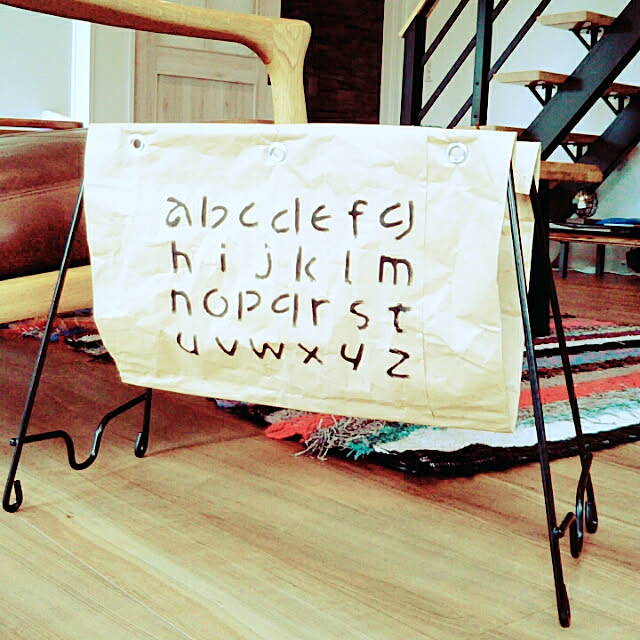 abcdefg
hijklm
nopqrst
uvwxyz